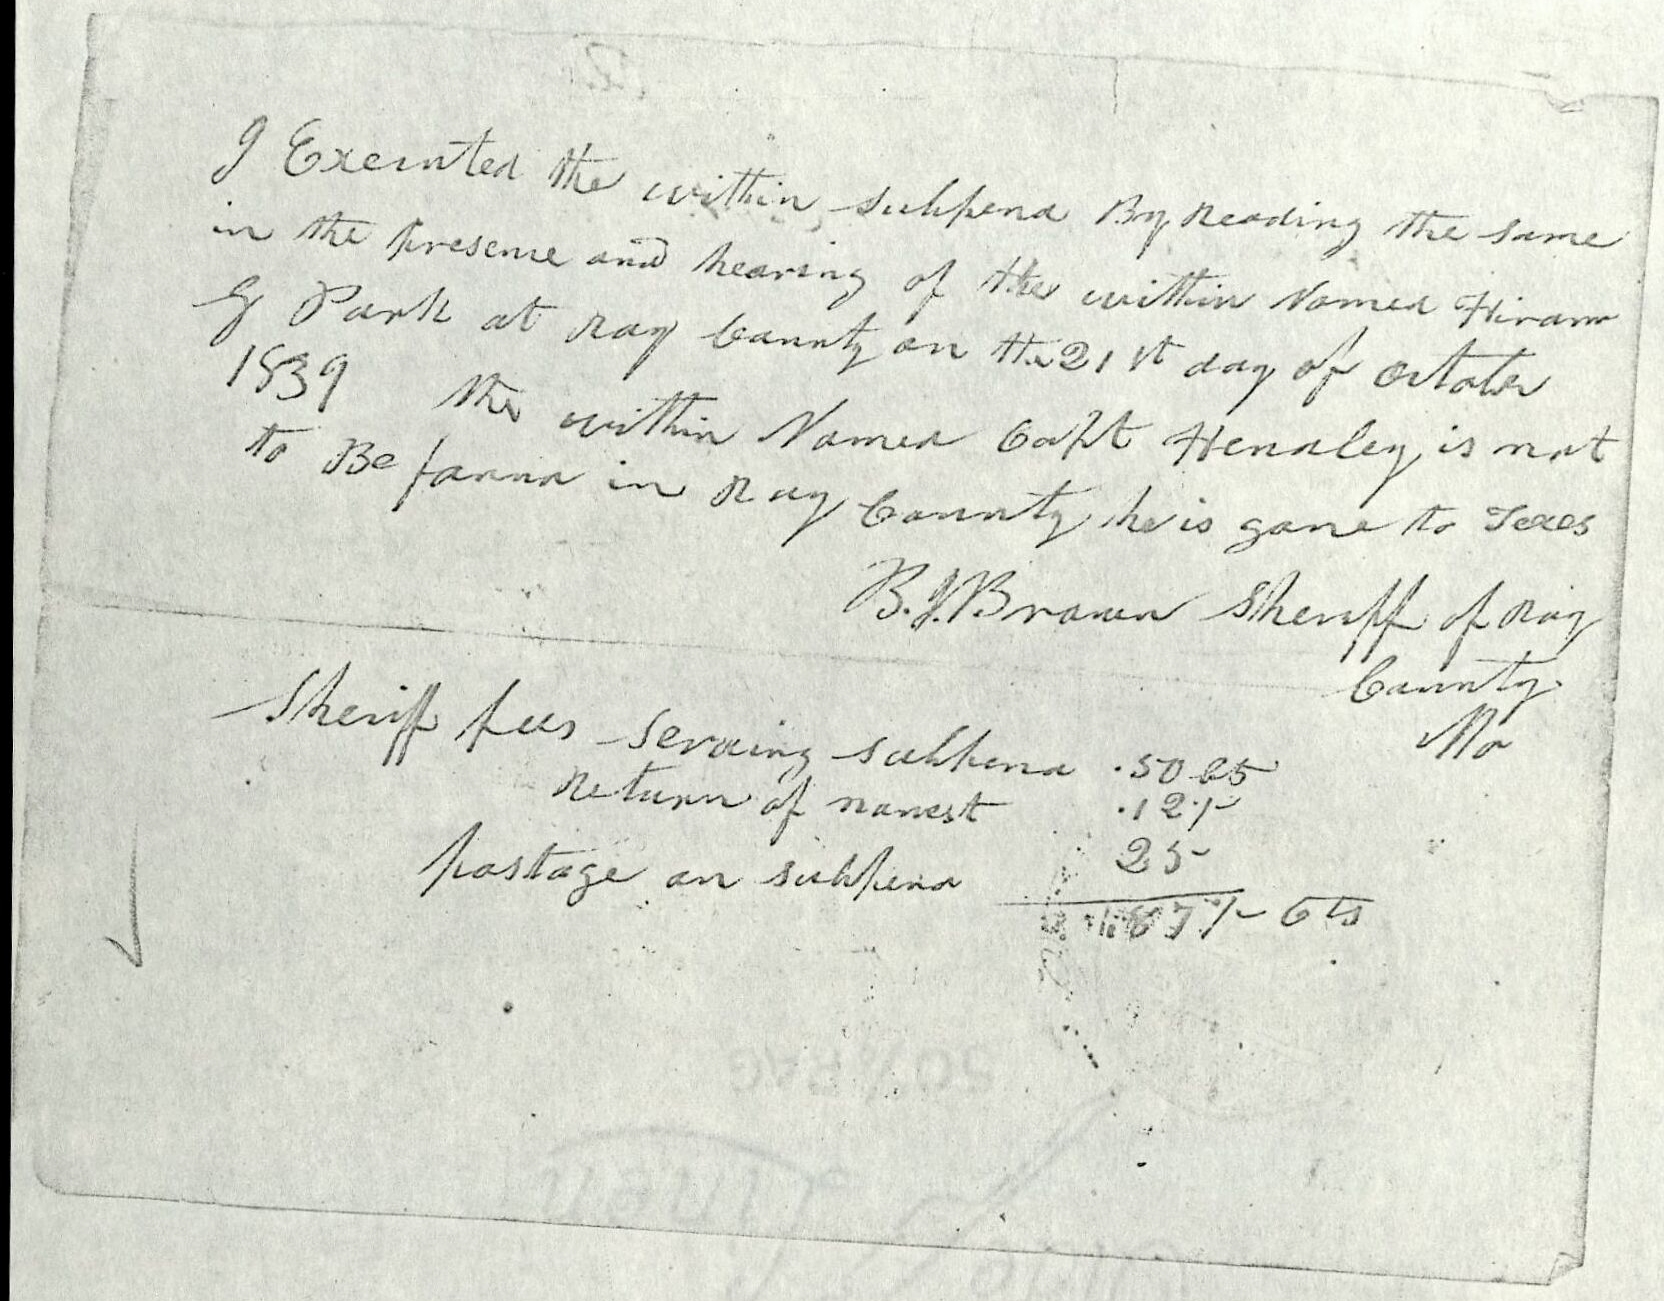 I Executed the within subpena By Reading the same
in the presence and hearing of the within Named Hiram
G Park at Ray County on the 21st day of october
1839 the within Named Capt Hensley is not
to Be found in Ray County he is gone to Texes
B. J. Brown Sheriff of Ray
County
Mo
Sheriff fees Serving subpena .50 cts
Return of nonest .12½
postage on subpena 25
87½ cts